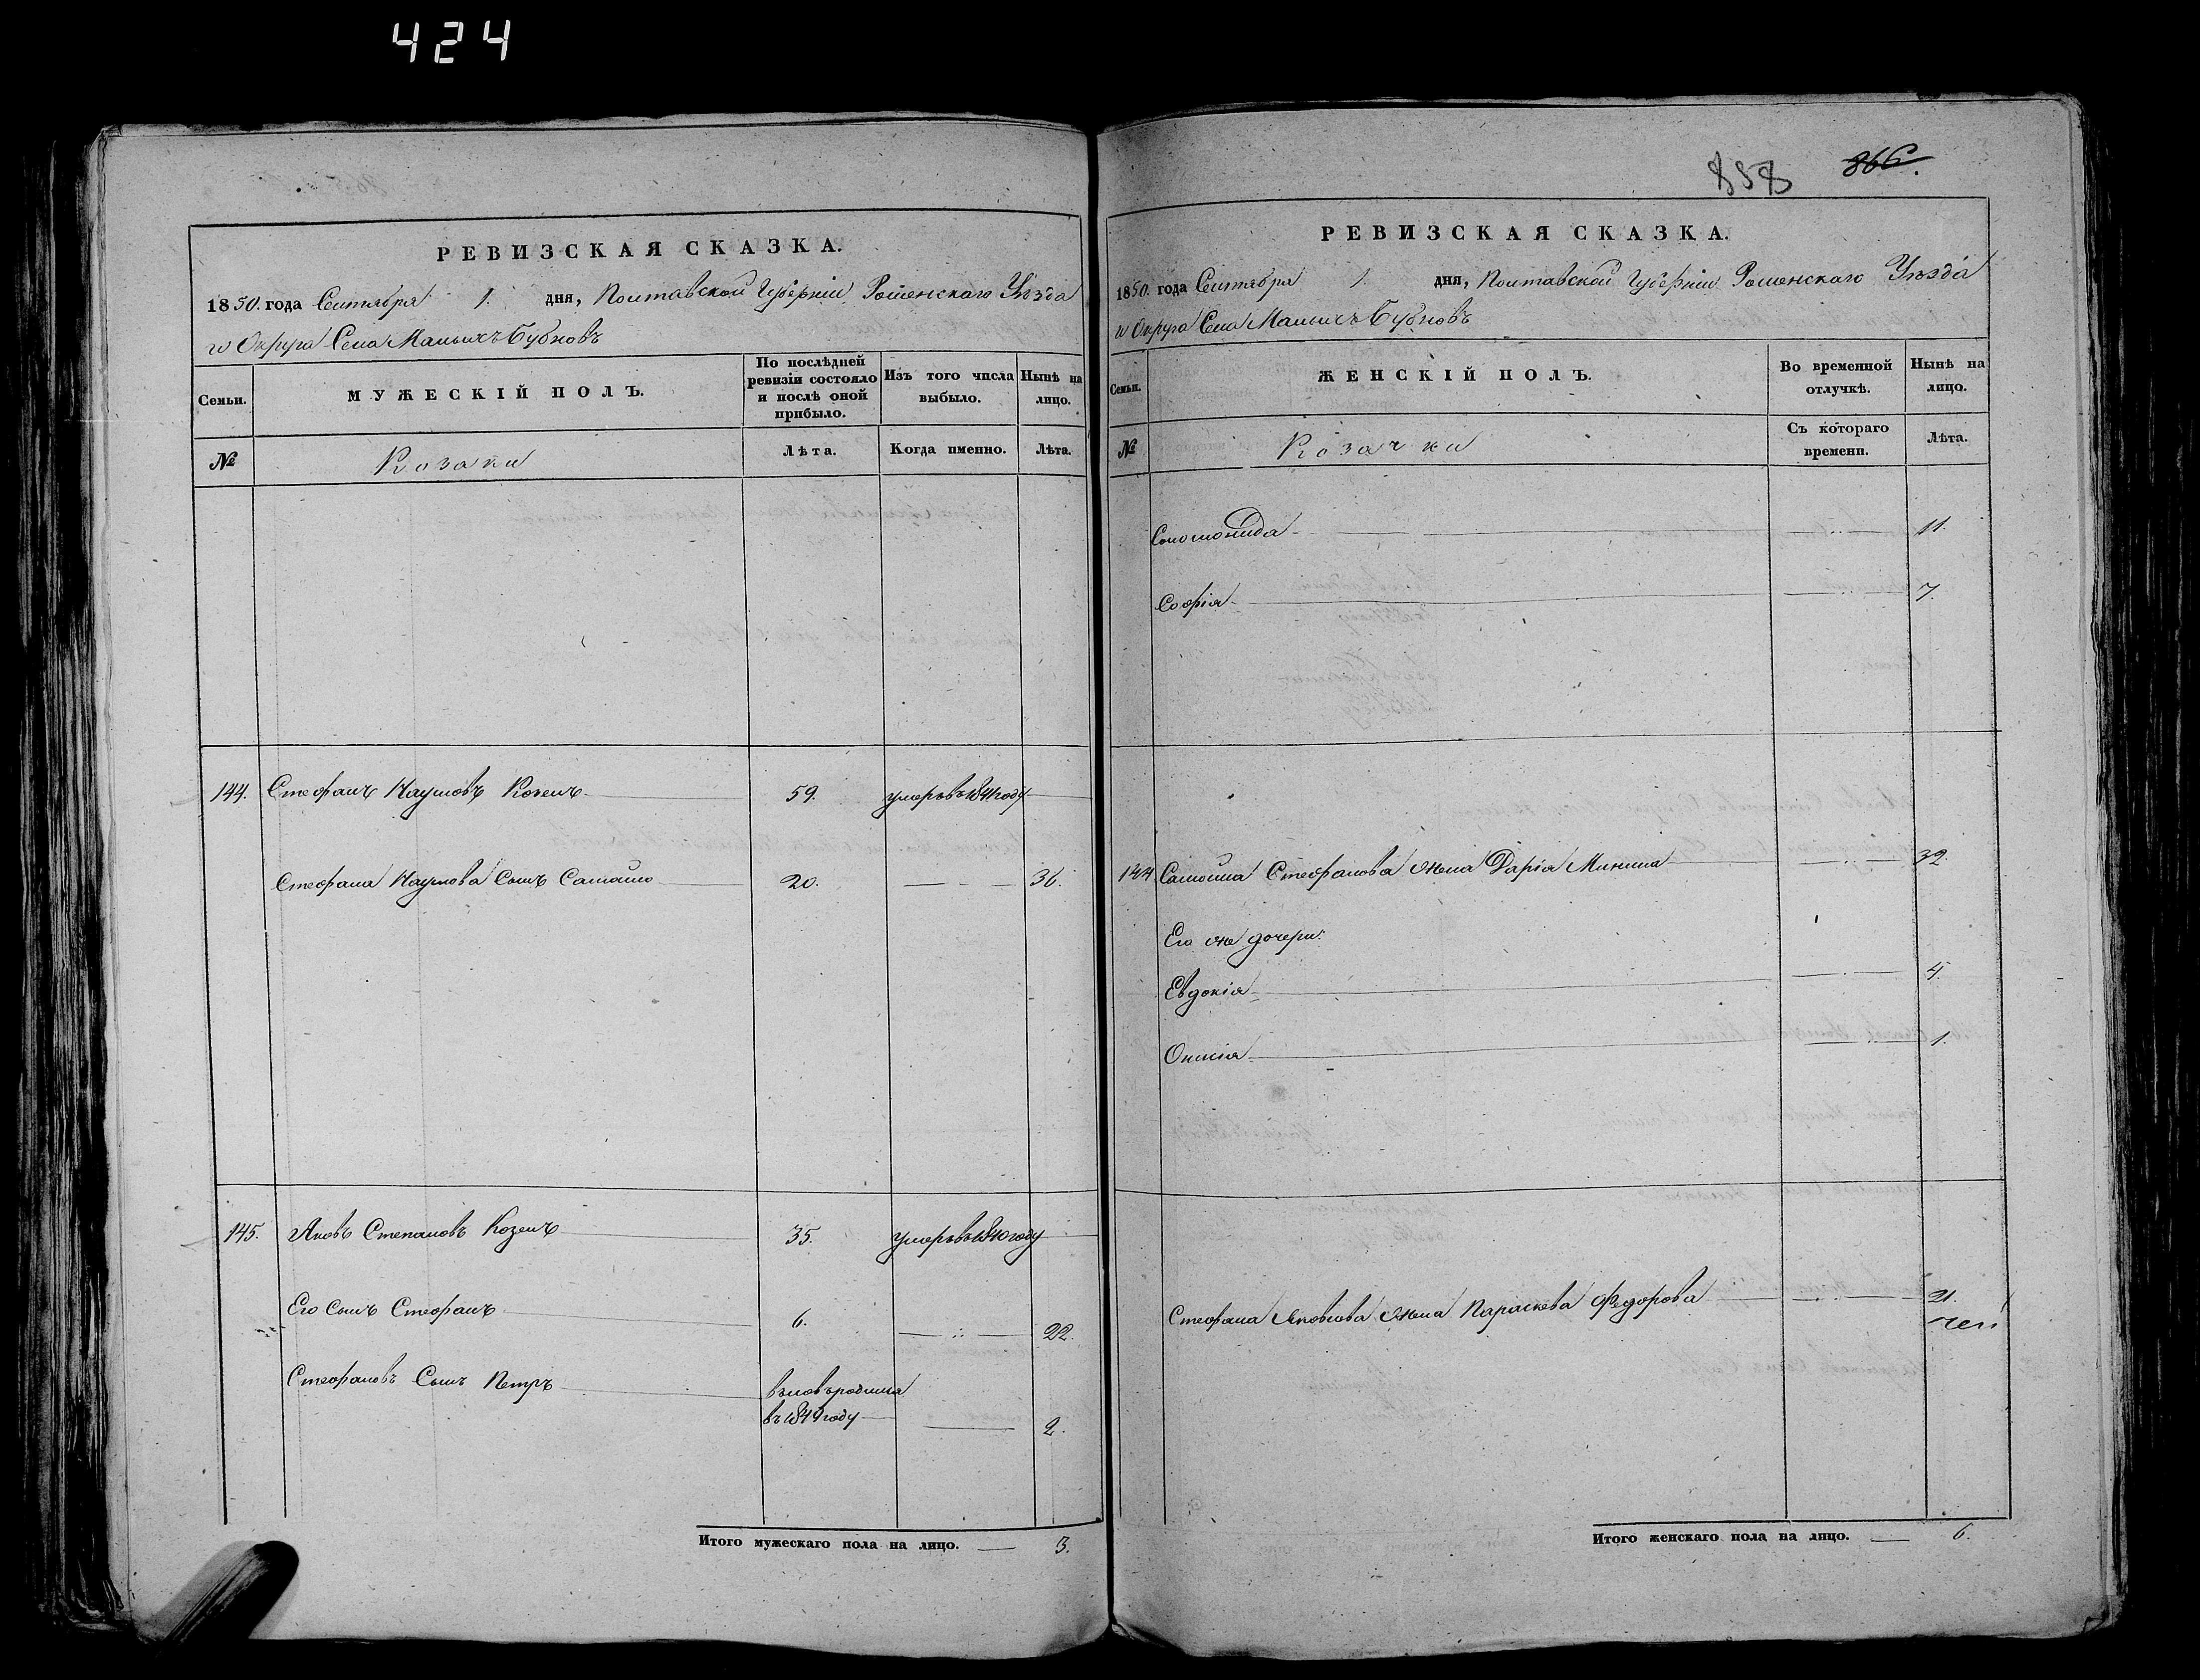 424
858 866.
РЕВИЗСКАЯ СКАЗКА.
1850. года Сентября 1. дня, Полтавской Губерніи Роменскаго Уѣзда
го Округа Села Малыхъ Бубновъ
Семьи.
МУЖЕСКІЙ ПОЛЪ.
По послѣдней ревизіи состояло и послѣ оной прибыло.
Изъ того числа выбыло.
Нынѣ на лицо.
№
Козаки
Лѣта.
Когда именно.
Лѣта.
144. Стефанъ Наумовъ Козелъ 59. умеръ въ 1841 году
Стефана Наумова Сынъ Самойло 20. 36.
145. Яковъ Степановъ Козелъ 35. умеръ въ 1840 году
Его Сынъ Стефанъ 6. 22.
Стефановъ Сынъ Петръ
въ 1849 году 2.
Итого мужескаго пола на лицо. 3.
РЕВИЗСКАЯ СКАЗКА.
1850. года Сентября 1. дня, Полтавской Губерніи Роменскаго Уѣзда
го Округа Села Малыхъ Бубновъ
Семьи.
ЖЕНСКІЙ ПОЛЪ.
Во временной отлучкѣ.
Нынѣ на лицо.
№
Козачки
Съ котораго времени.
Лѣта.
Соломонида 11.
Софія 7.
144 Самойла Стефанова жена Дарія Минина 32.
Его же дочери:
Евдокія 4.
1.
Стефана Яковлева жена Параскева Федорова 21.
Итого женскаго пола на лицо. 6.